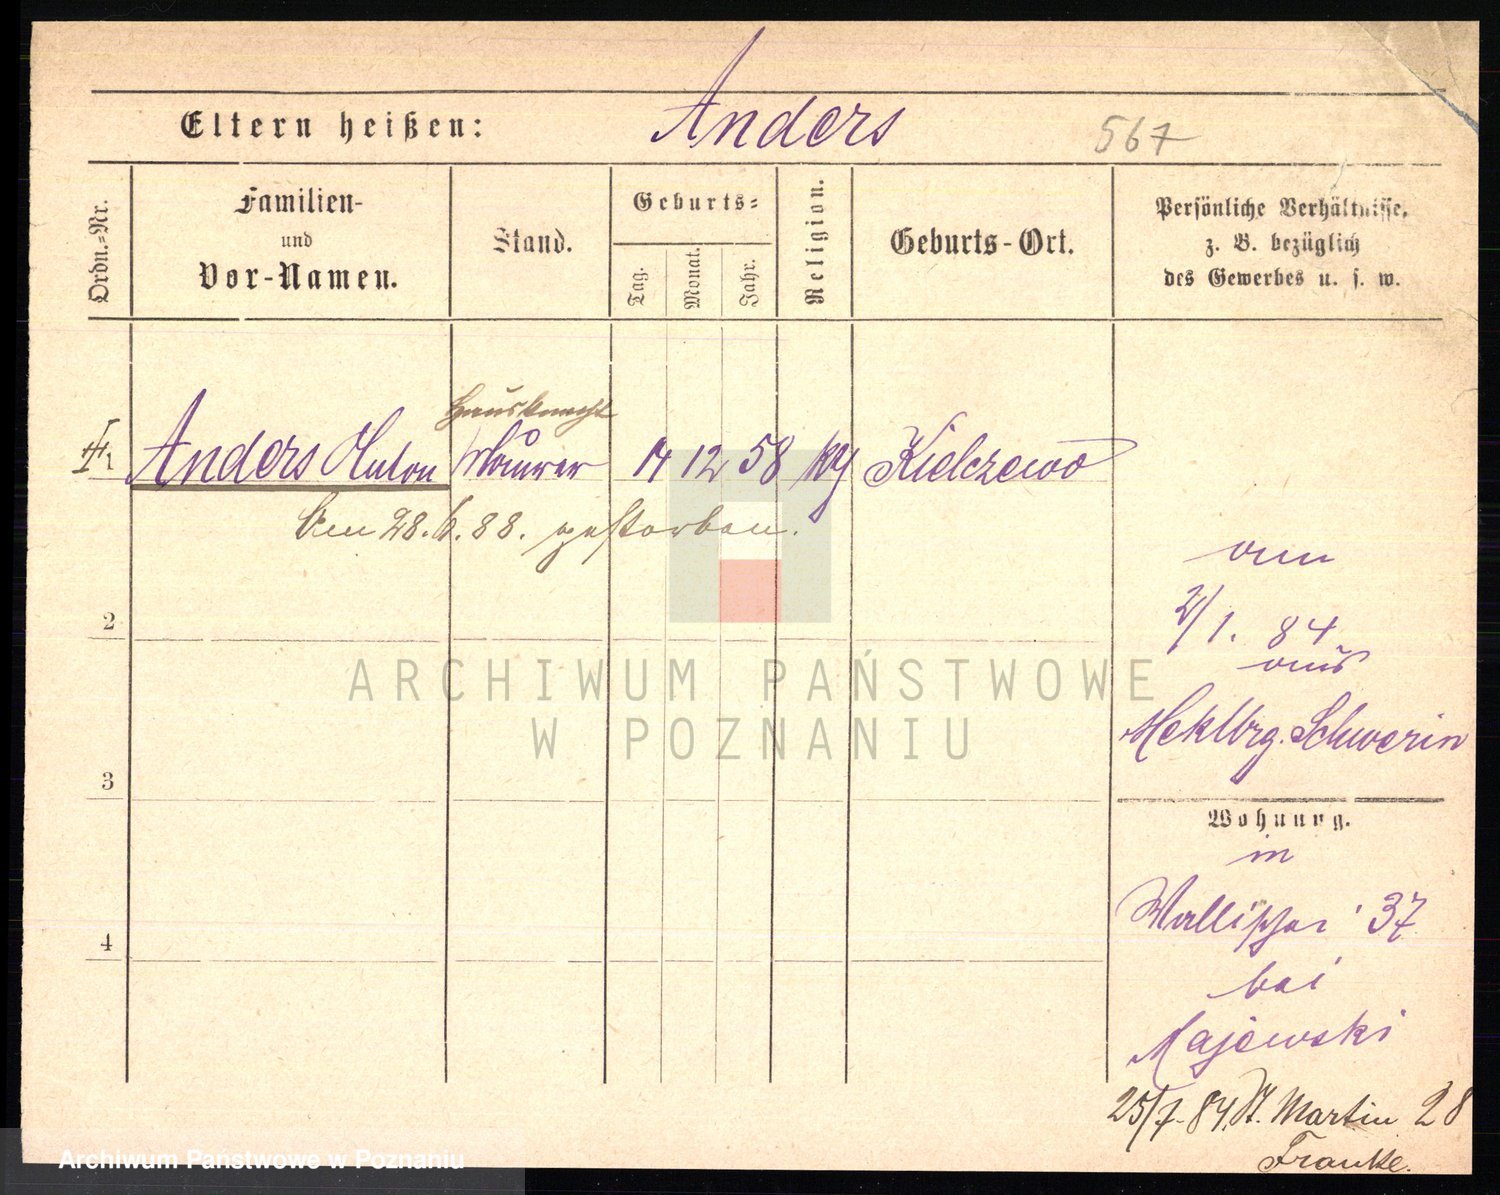 Eltern heißen: Anders 567
Ordn.=Nr.
Familien-
und
Vor-Namen.
Stand.
Geburts=
Tag.
Monat.
Jahr.
Religion.
Geburts-Ort.
Persönliche Verhältnisse,
z. B. bezüglich
des Gewerbes u. s. w.
Hausknecht
1 Anders Anton Maurer 14 12 58 Kielczewo
Am 28.6.88. gestorben.
2
3
4
am
2/1. 84
aus
Meklbrg. Schwerin
Wohnung.
in
Wallischei 37
bei
Majewski
25/7.84 St. Martin 28
Franke.
ARCHIWUM PAŃSTWOWE
W POZNANIU
Archiwum Państwowe w Poznaniu